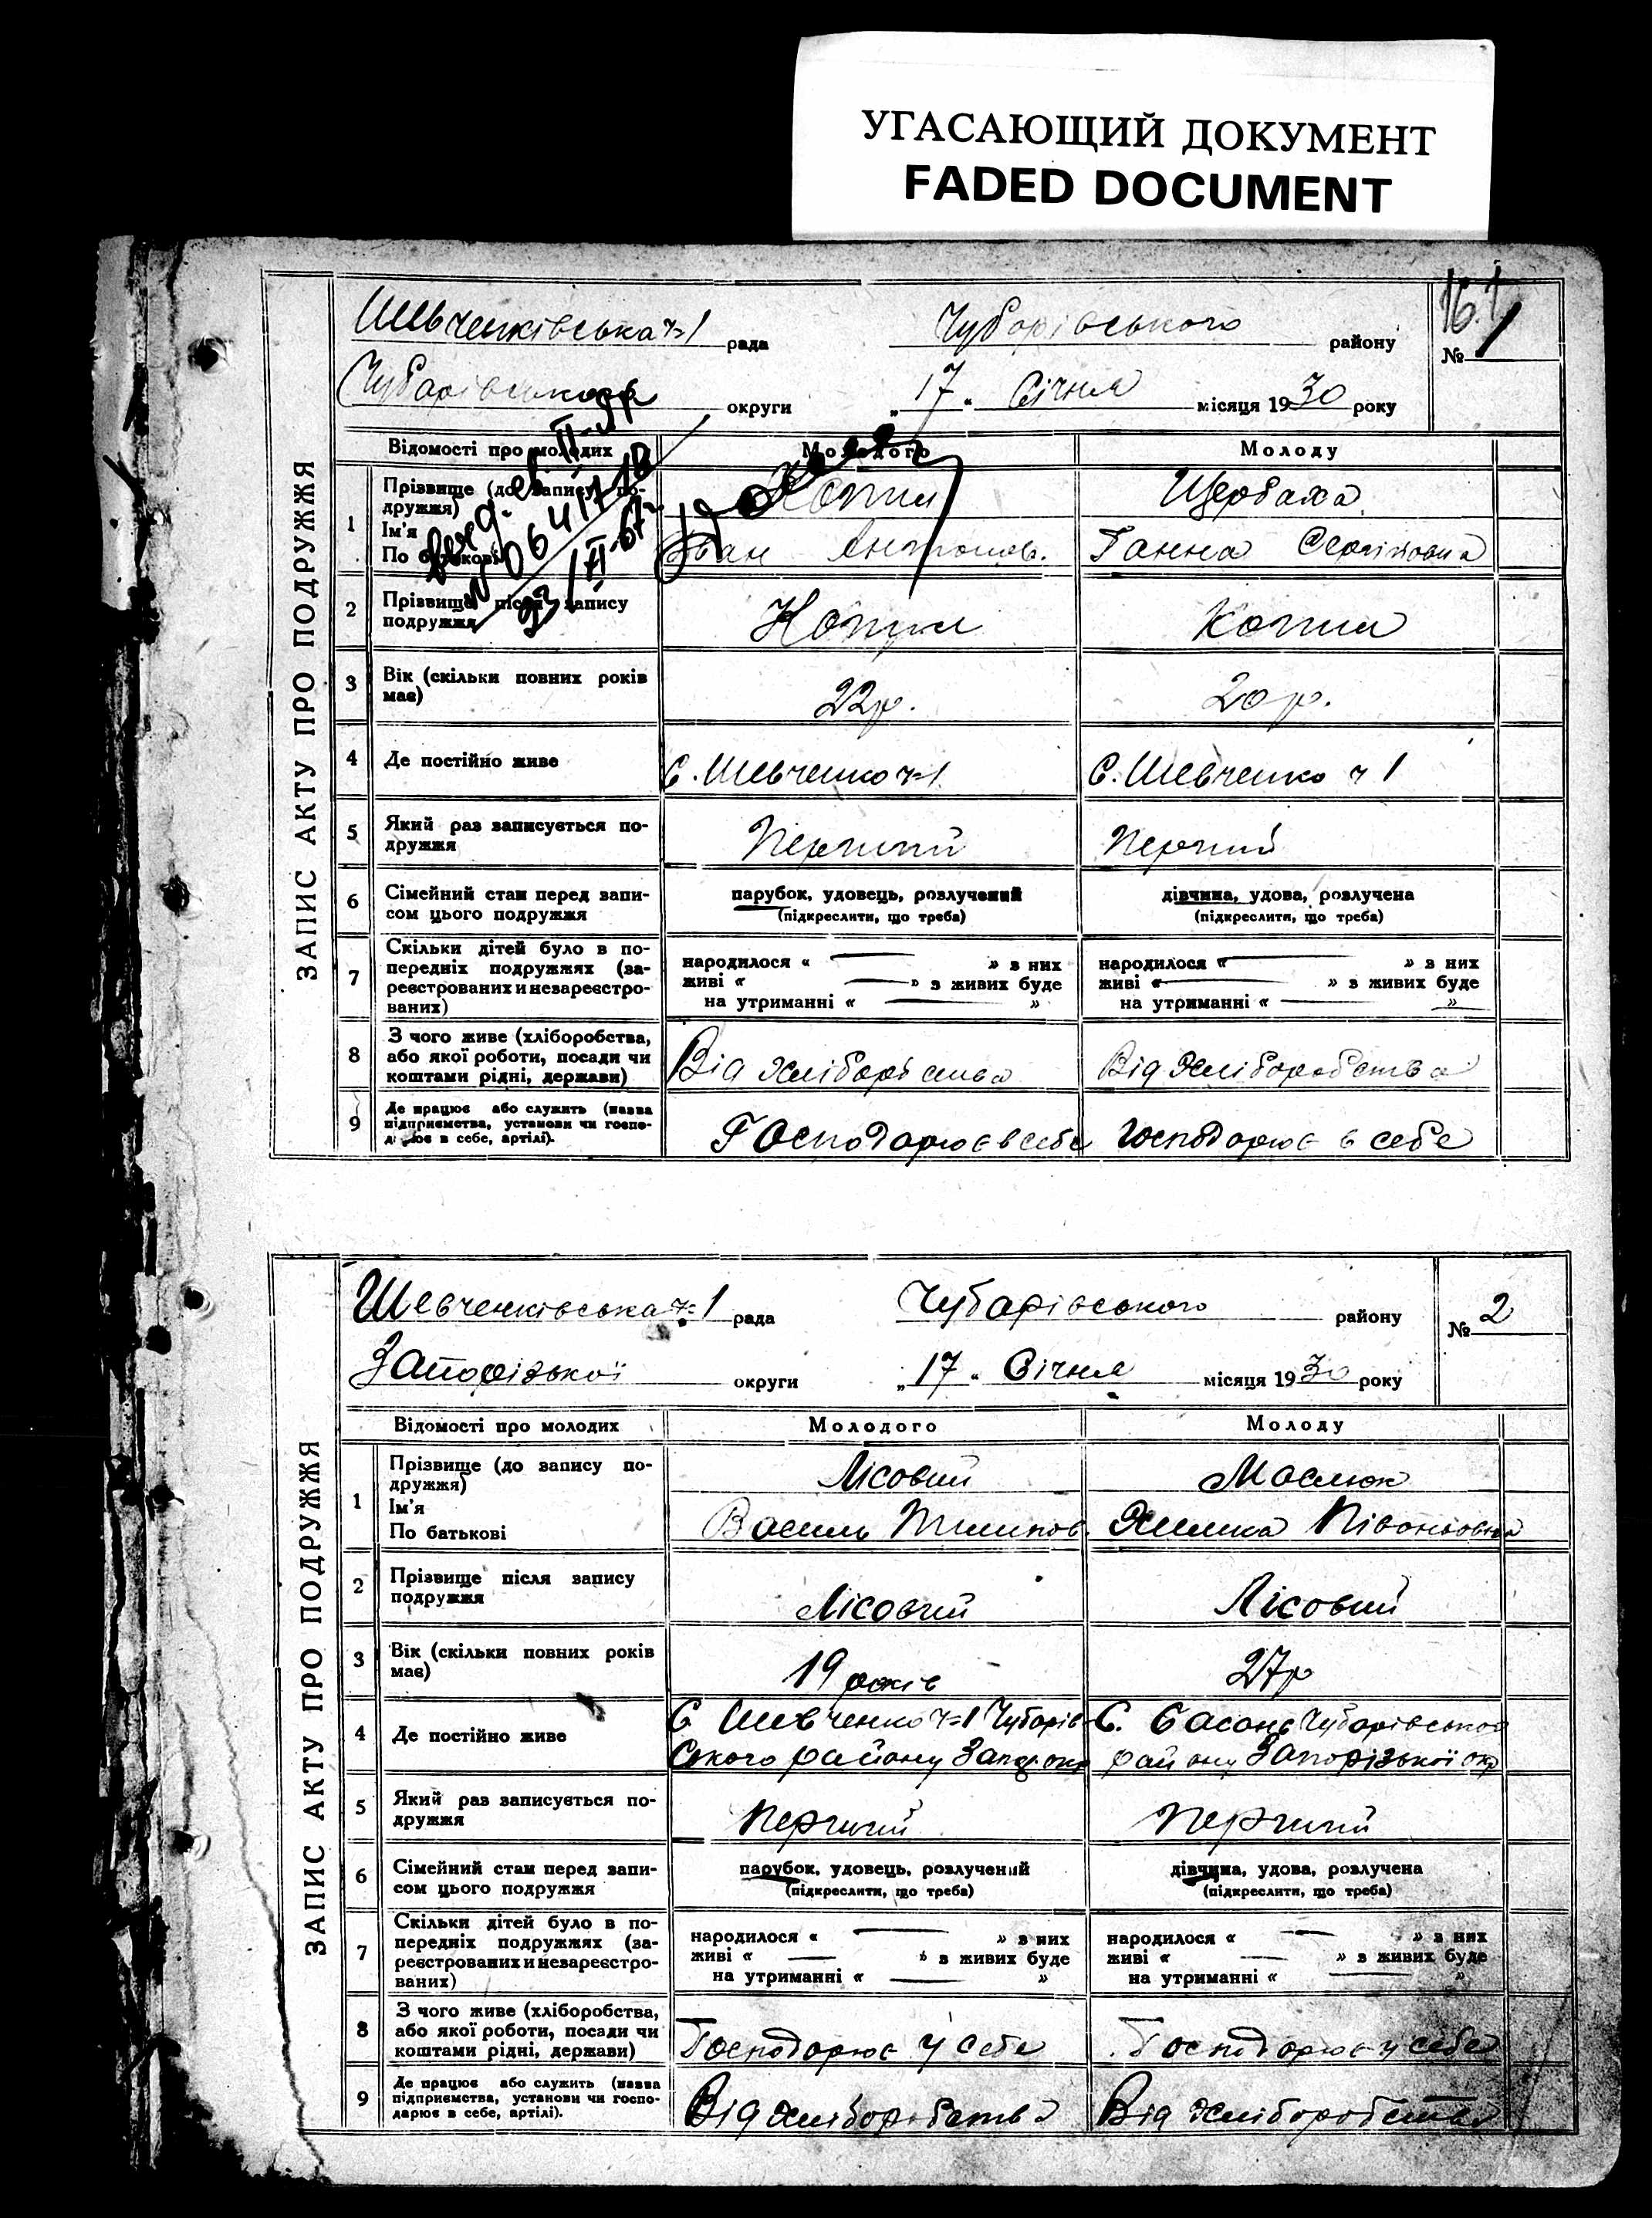 УГАСАЮЩИЙ ДОКУМЕНТ
FADED DOCUMENT
ЗАПИС АКТУ ПРО ПОДРУЖЖЯ
Шевченківська ч=1 рада Чубарівського району № 1
округи „17“ Січня місяця 1930 року
Відомості про молодих Молодого Молоду
1 Прізвище (до запису по-
дружжя)
Ім'я
По батькові
Копил Щербаха
Іван Антонов. Ганна
2 Прізвище після запису
подружжя
Копил Копил
3 Вік (скільки повних років
має)
22р. 20р.
4 Де постійно живе С. Шевченко ч=1 С. Шевченко ч 1
5 Який раз записується по-
дружжя
Перший Перший
6 Сімейний стан перед запи-
сом цього подружжя
парубок, удовець, розлучений дівчина, удова, розлучена
(підкреслити, що треба) (підкреслити, що треба)
7 Скільки дітей було в по-
передніх подружжях (за-
реєстрованих и незареєстро-
ваних)
народилося « — » з них народилося « — » з них
живі « — » з живих буде живі « — » з живих буде
на утриманні « — » на утриманні « — »
8 З чого живе (хліборобства,
або якої роботи, посади чи
коштами рідні, держави)
Від Від Хліборобства
9 Де працює або служить (назва
підприємства, установи чи госпо-
дарює в себе, артілі).
Господарює в себе Господарює в себе
ЗАПИС АКТУ ПРО ПОДРУЖЖЯ
Шевченківська ч=1 рада Чубарівського району № 2
Запорізької округи „17“ Січня місяця 1930 року
Відомості про молодих Молодого Молоду
1 Прізвище (до запису по-
дружжя)
Ім'я
По батькові
Лісовий Маслюк
Василь
2 Прізвище після запису
подружжя
Лісовий Лісовий
3 Вік (скільки повних років
має)
19 років 27р
4 Де постійно живе
С. Шевченко ч=1 Чубарів- С. Басань Чубарівського
ського району Запор окр району Запорізької окр
5 Який раз записується по-
дружжя
Перший Перший
6 Сімейний стан перед запи-
сом цього подружжя
парубок, удовець, розлучений дівчина, удова, розлучена
(підкреслити, що треба) (підкреслити, що треба)
7 Скільки дітей було в по-
передніх подружжях (за-
реєстрованих и незареєстро-
ваних)
народилося « — » з них народилося « — » з них
живі « — » з живих буде живі « — » з живих буде
на утриманні « — » на утриманні « — »
8 З чого живе (хліборобства,
або якої роботи, посади чи
коштами рідні, держави)
Господорює у себе Господорює у себе
9 Де працює або служить (назва
підприємства, установи чи госпо-
дарює в себе, артілі).
Від Хліборобства Від Хліборобства